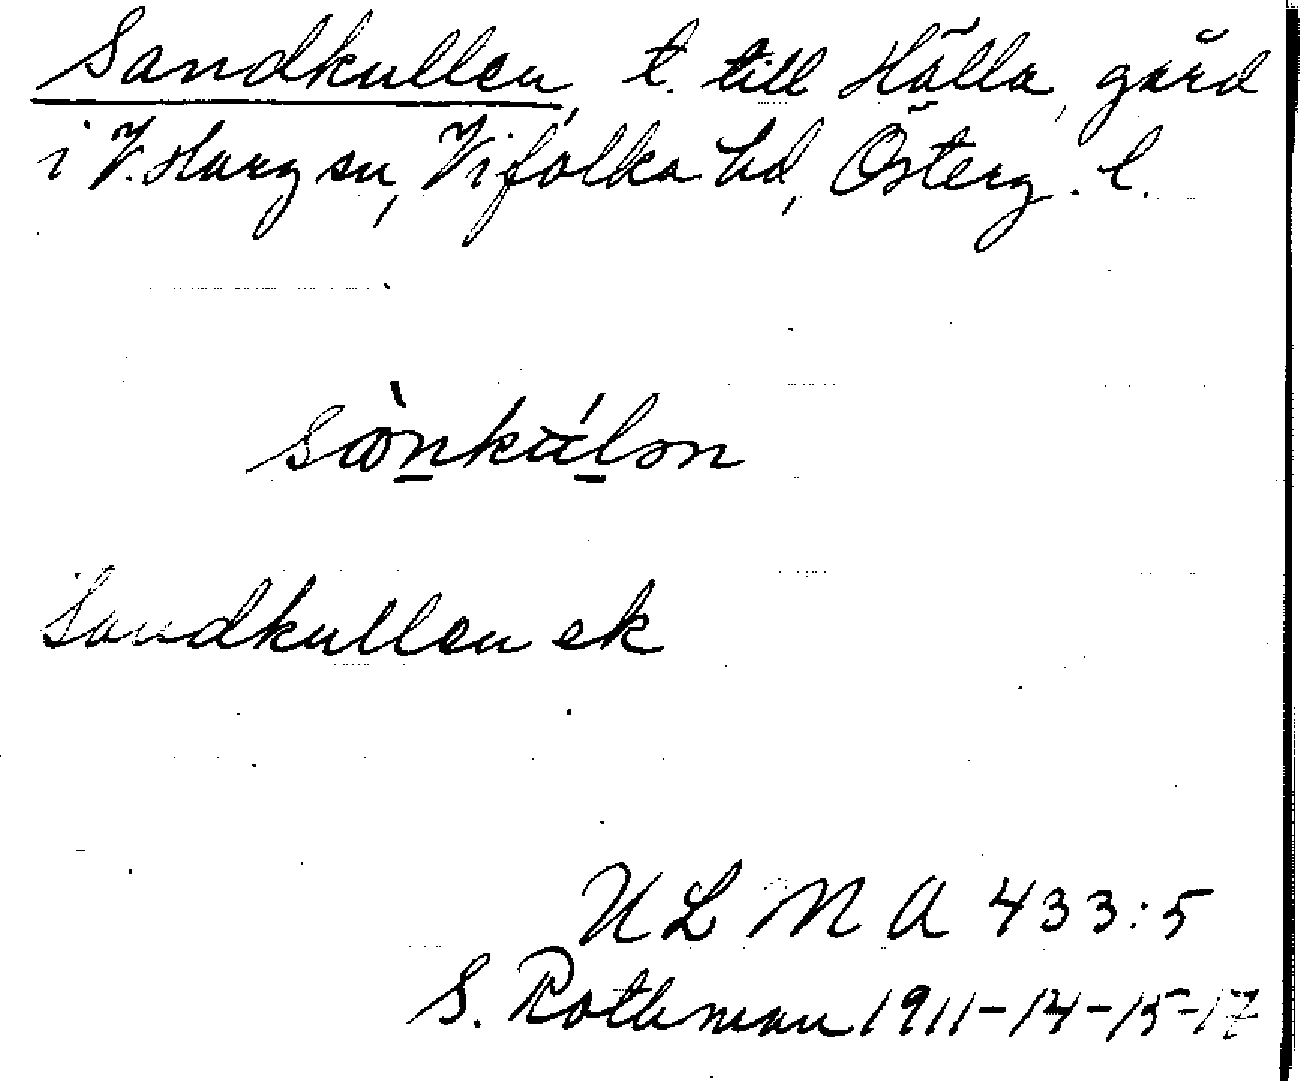 Sandkullen, t. till Hälla, gård
i V. Harg sn, Vifolka hd, Österg. l.
Sandkullen ek
ULMA 433:5
S. Rothman 1911-14-15-17